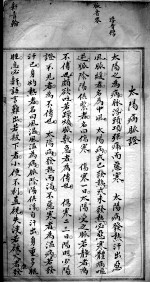 太陽病脈證
太陽之為病脈浮頭項強痛而惡寒 太陽病發熱汗出惡
風脈緩者名為中風 太陽病或已發熱或未發熱必惡寒體痛嘔
逆脈陰陽俱緊者名曰傷寒 傷寒一日太陽受之脈若靜者為
不傳頗欲吐若躁煩脈數急者為傳也 傷寒二三日陽明少陽
證不見者為不傳也 太陽病發熱而渴不惡寒者為溫病若發
汗已身灼熱者名曰風溫風溫為病脈陰陽俱浮自汗出身重多眠
睡鼻息必鼾語言難出若被下者小便不利直視失溲若被火者發